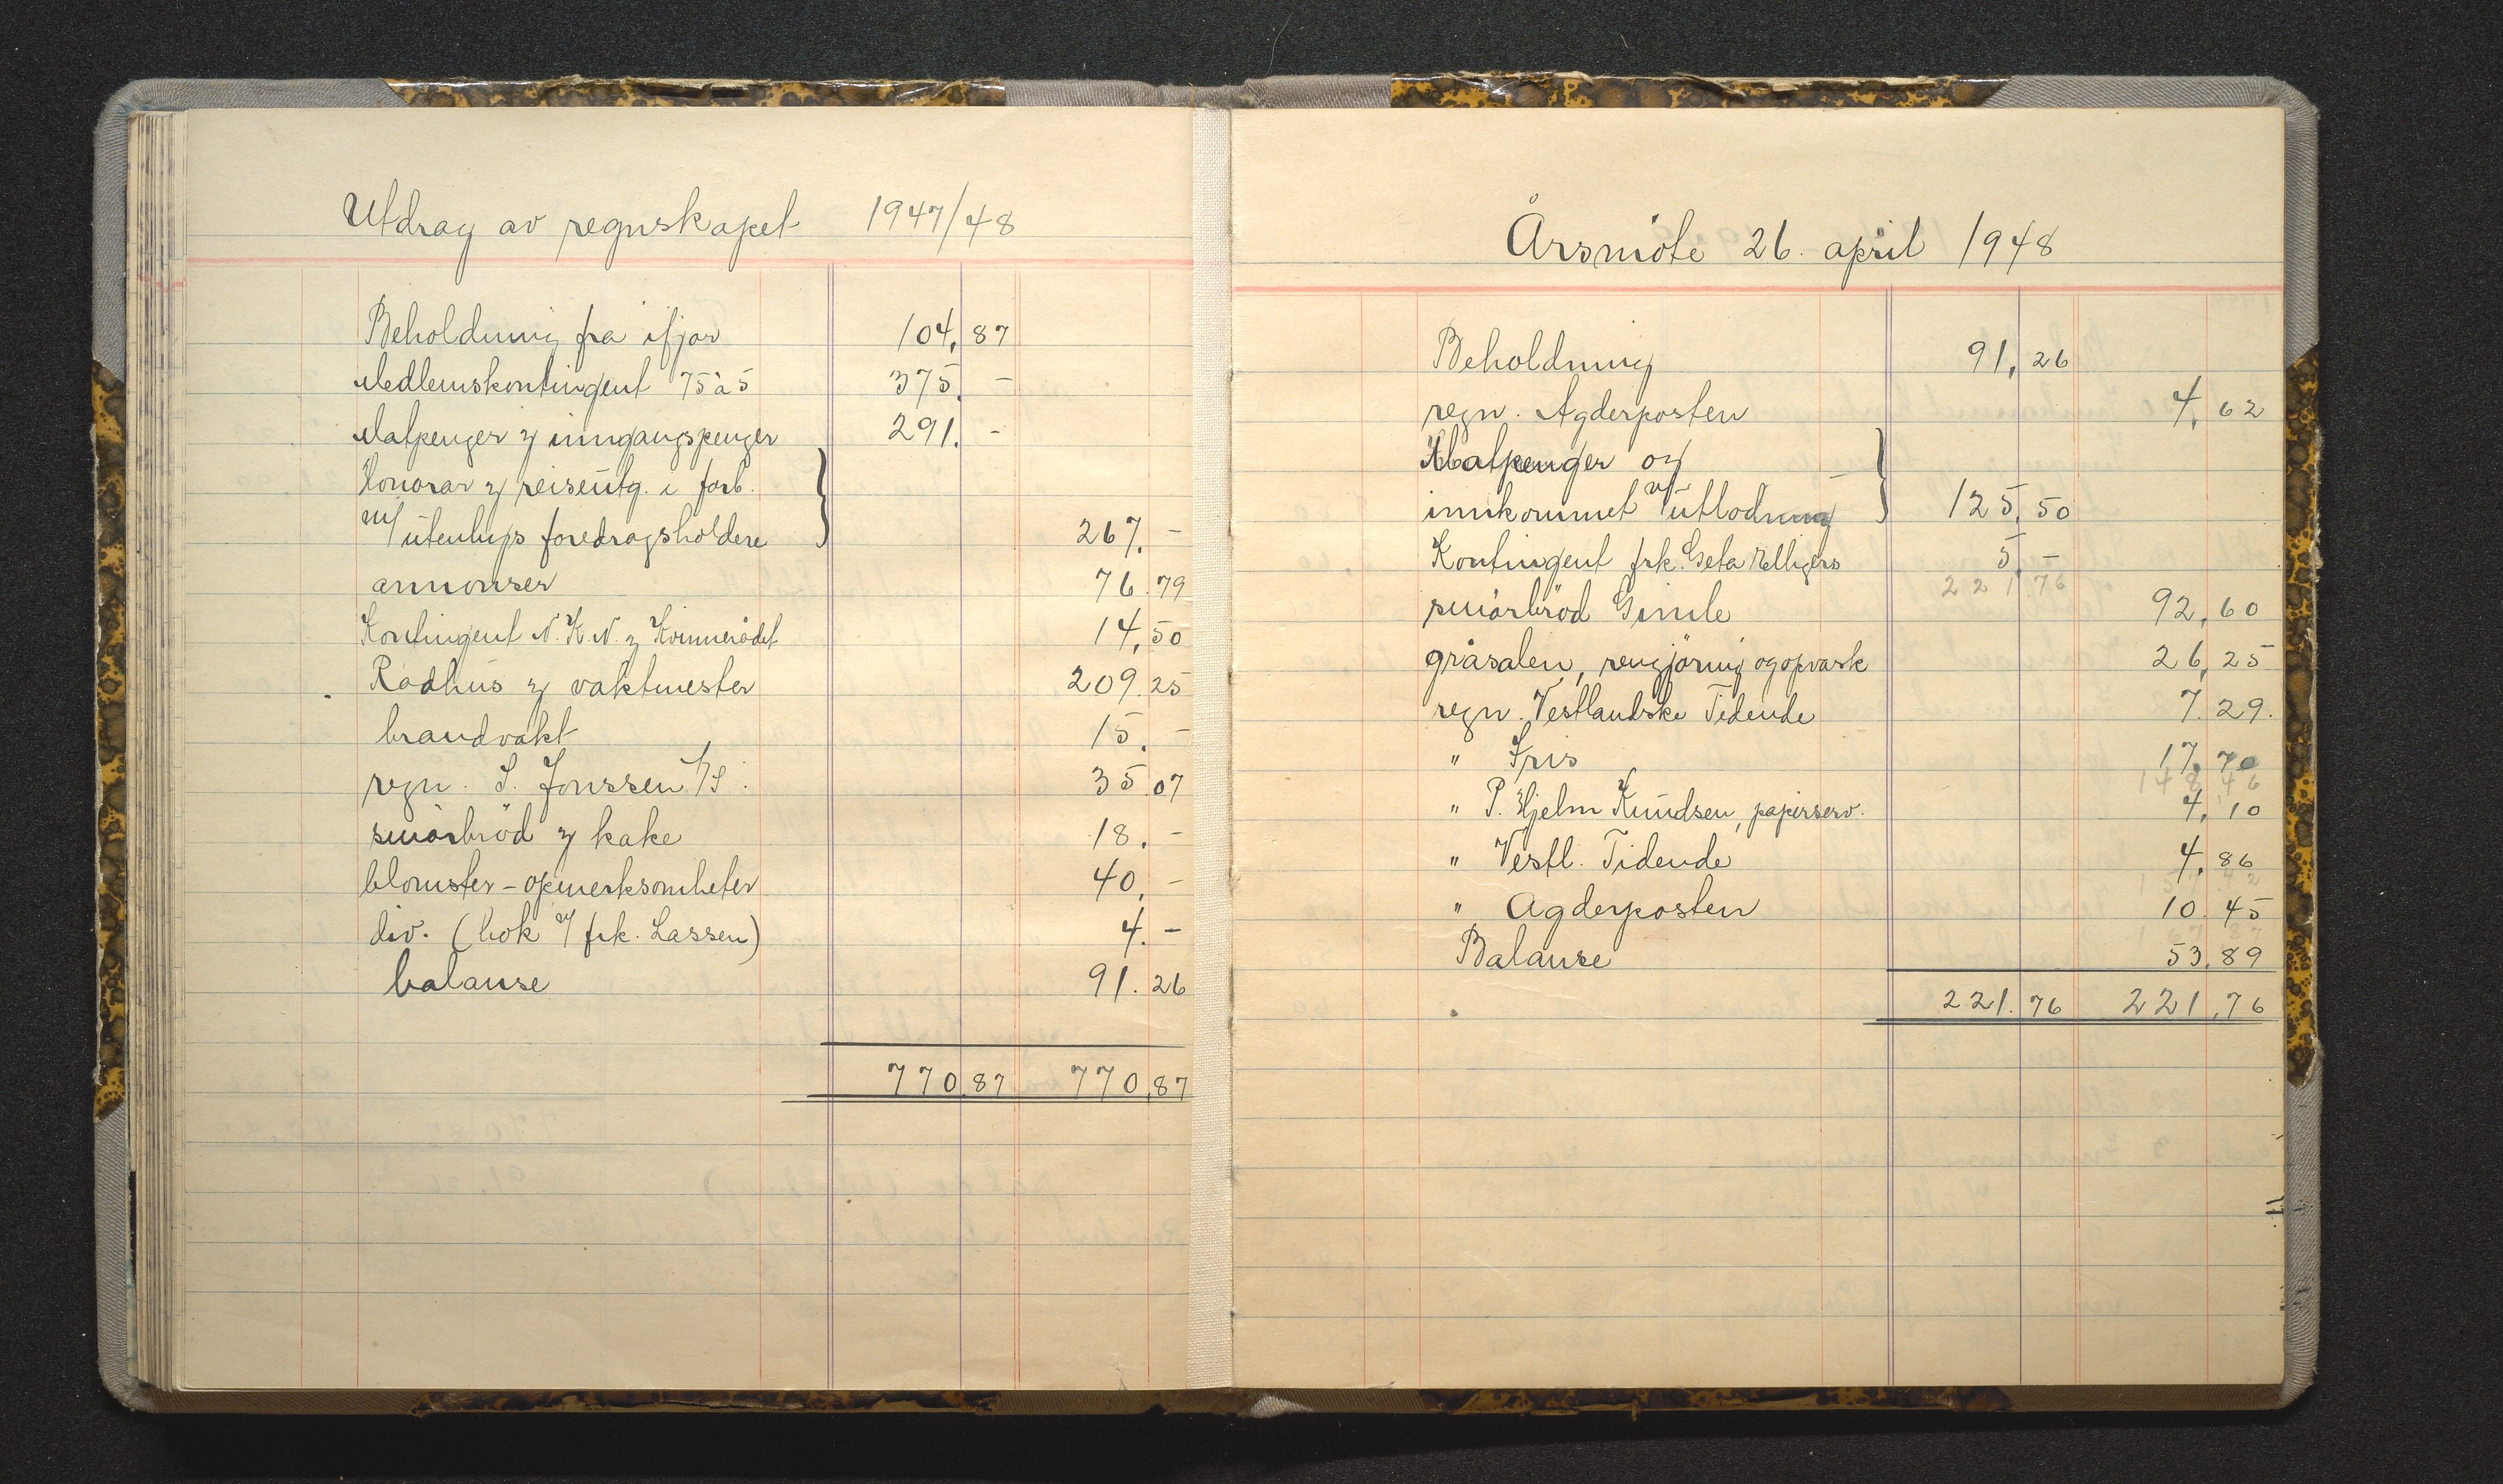 Utdrag av regnskapet 1947/48
Beholdning fra ifjor 104,87
Medlemskontingent 75 à 5 375.-
Matpenger og inngangspenger 291.-
Honorar og reiseutg. i forb.
m/ utenbys foredragsholdere 267.-
annonser 76.79
Kontingent N.K.N. og Kvinnerådet 14,50
Rådhus og vaktmester 209.25
brandvakt 15.-
regn. S. Jonssen A/S. 35.07
smørbröd og kake 18.-
blomster - opmerksomheter 40,-
div. (bok t/ frk. Lassen) 4.-
balanse 91.26
770,87 770,87
Årsmöte 26. april 1948
Beholdning 91,26
regn. Agderposten 4,62
Matpenger og
innkommet v/ utlodning 125,50
Kontingent frk. Geta 5.-
221.76
smörbröd Gimle 92,60
gråsalen, rengjöring og opvask 26,25
regn. Vestlandske Tidende 7.29.
" Iris 17,70
148 46
" P. Hjelm Knudsen, papirserv. 4,10
" Vestl. Tidende 4,86
" Agderposten 10.45
Balanse 53,89
221.76 221,76